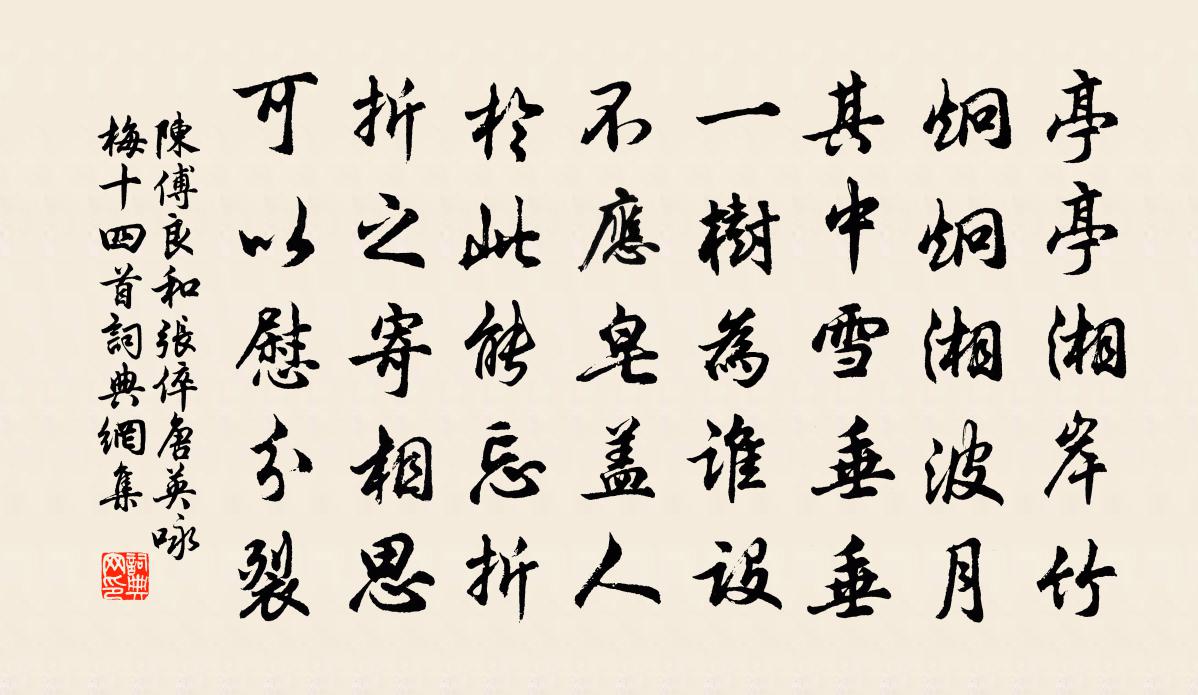 亭亭湘岸竹
炯炯湘波月
其中雪垂垂
一樹為誰設
不應皂盖人
於此能忘折
折之寄相思
可以慰分裂
陳傅良和張倅唐英咏
梅十四首詞典網集
詞典网印